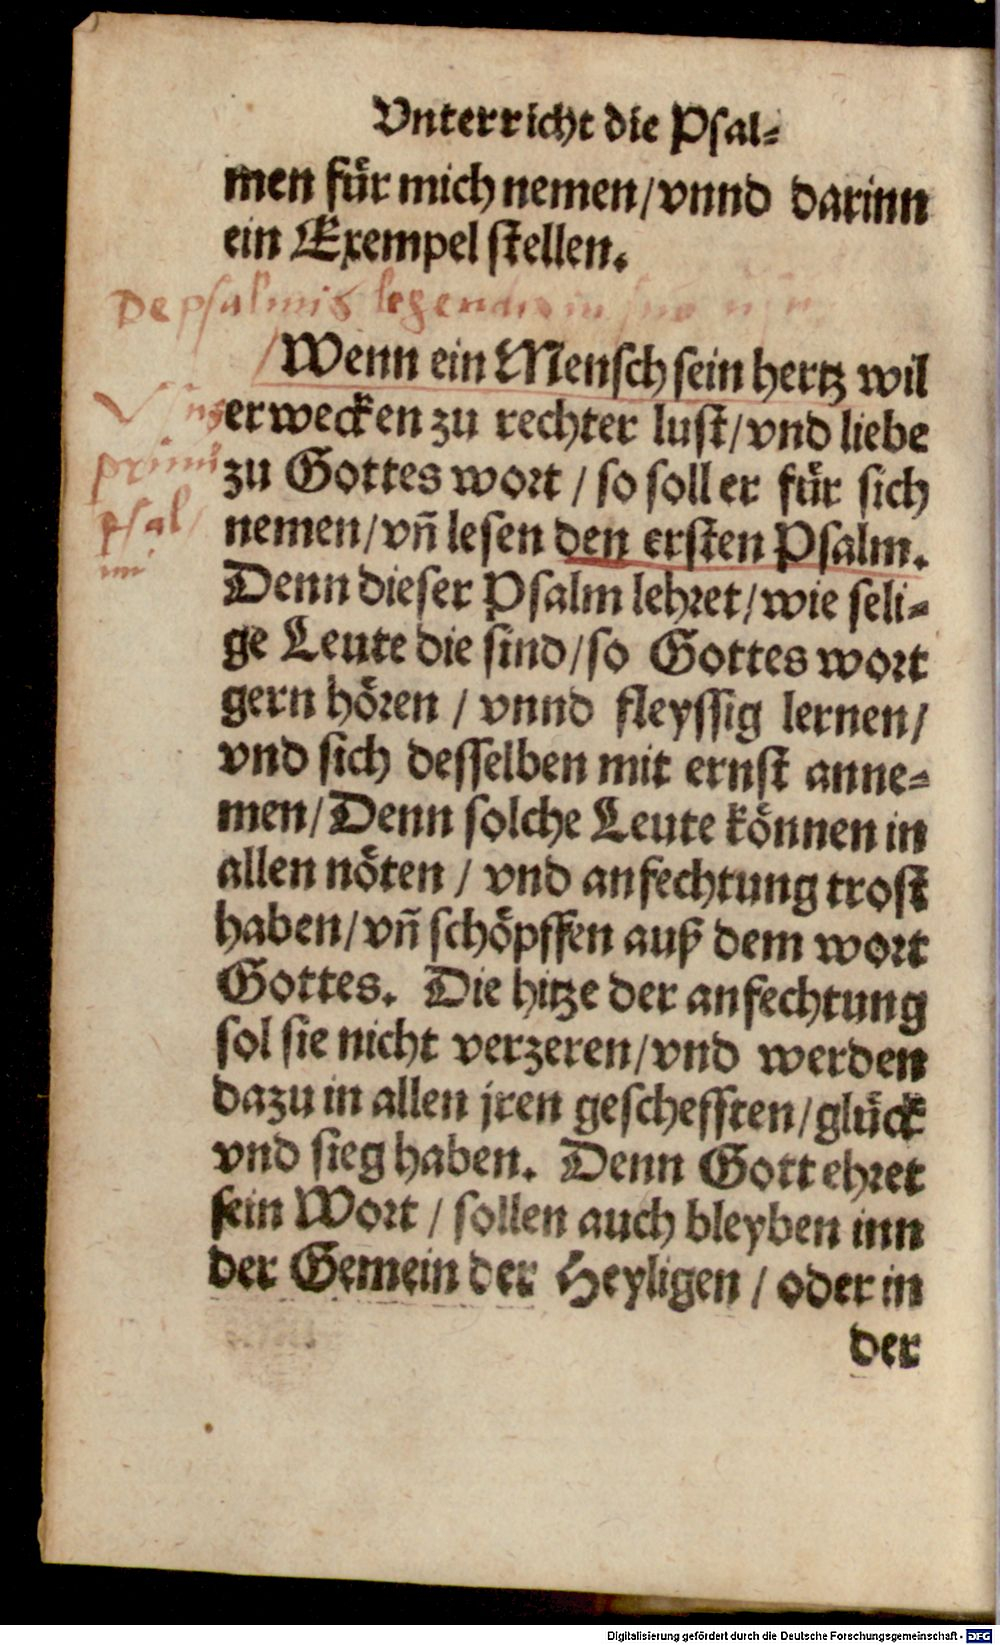 Vnterricht die Psal=
men für mich nemen/vnnd darinn
ein Exempel stellen.
De psalmis legendis in suo usu
Wenn ein Mensch sein hertz wil
Vsus
erwecken zu rechter lust/vnd liebe
primi
zu Gottes wort / so soll er für sich
psal/
nemen/vñ lesen den ersten Psalm.
mi
Denn dieser Psalm lehret/wie seli=
ge Leute die sind/so Gottes wort
gern hören / vnnd fleyssig lernen/
vnd sich desselben mit ernst anne=
men/Denn solche Leute können in
allen nöten / vnd anfechtung trost
haben/vñ schöpffen auß dem wort
Gottes. Die hitze der anfechtung
sol sie nicht verzeren/vnd werden
dazu in allen jren geschefften/glück
vnd sieg haben. Denn Gott ehret
sein Wort / sollen auch bleyben inn
der Gemein der Heyligen / oder in
der
Digitalisierung gefördert durch die Deutsche Forschungsgemeinschaft - DFG